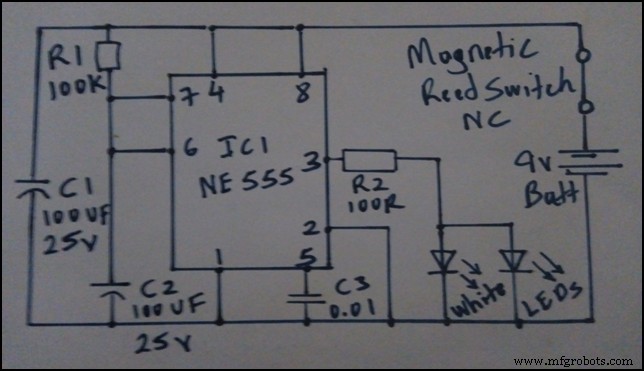 R1
100K
7 4 8
6
IC1
NE 555
3
2
1
5
R2
100R
C1
100UF
25v
C2
100UF
25v
C3
0.01
Magnetic
Reed Switch
NC
9v
Batt
White
LEDs
www.mfgrobots.com